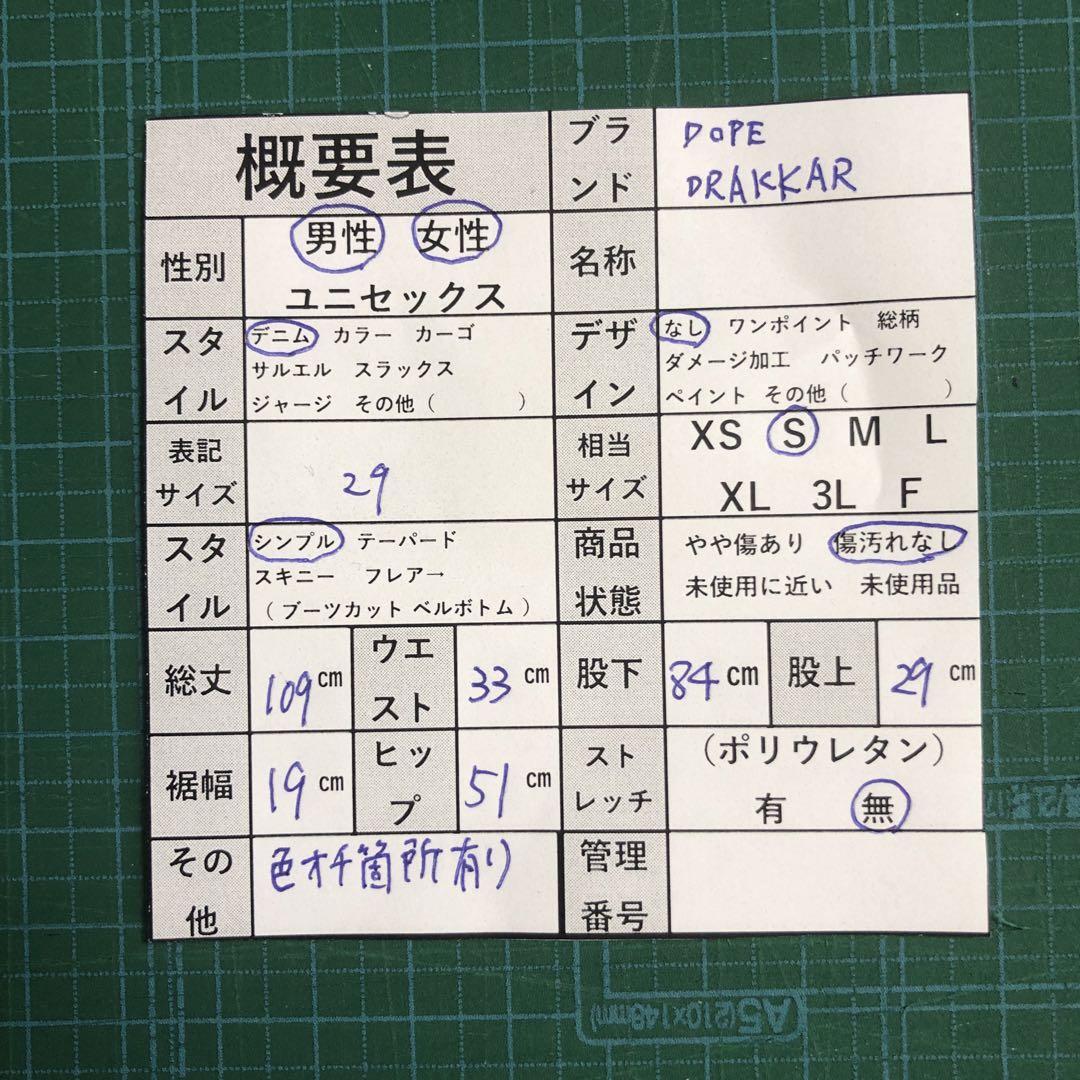 概要表
ブランド
DOPE
DRAKKAR
性別
男性 女性
ユニセックス
名称
スタイル
デニム カラー カーゴ
サルエル スラックス
ジャージ その他( )
デザイン
なし ワンポイント 総柄
ダメージ加工 パッチワーク
ペイント その他( )
表記
サイズ
29
相当
サイズ
XS S M L
XL 3L F
スタイル
シンプル テーパード
スキニー フレア→
(ブーツカット ベルボトム)
商品
状態
やや傷あり 傷汚れなし
未使用に近い 未使用品
総丈
109 cm
ウエスト
33 cm
股下
84 cm
股上
29 cm
裾幅
19 cm
ヒップ
51 cm
ストレッチ
(ポリウレタン)
有 無
その他
色オチ箇所有り
管理
番号
A5(210×148mm)